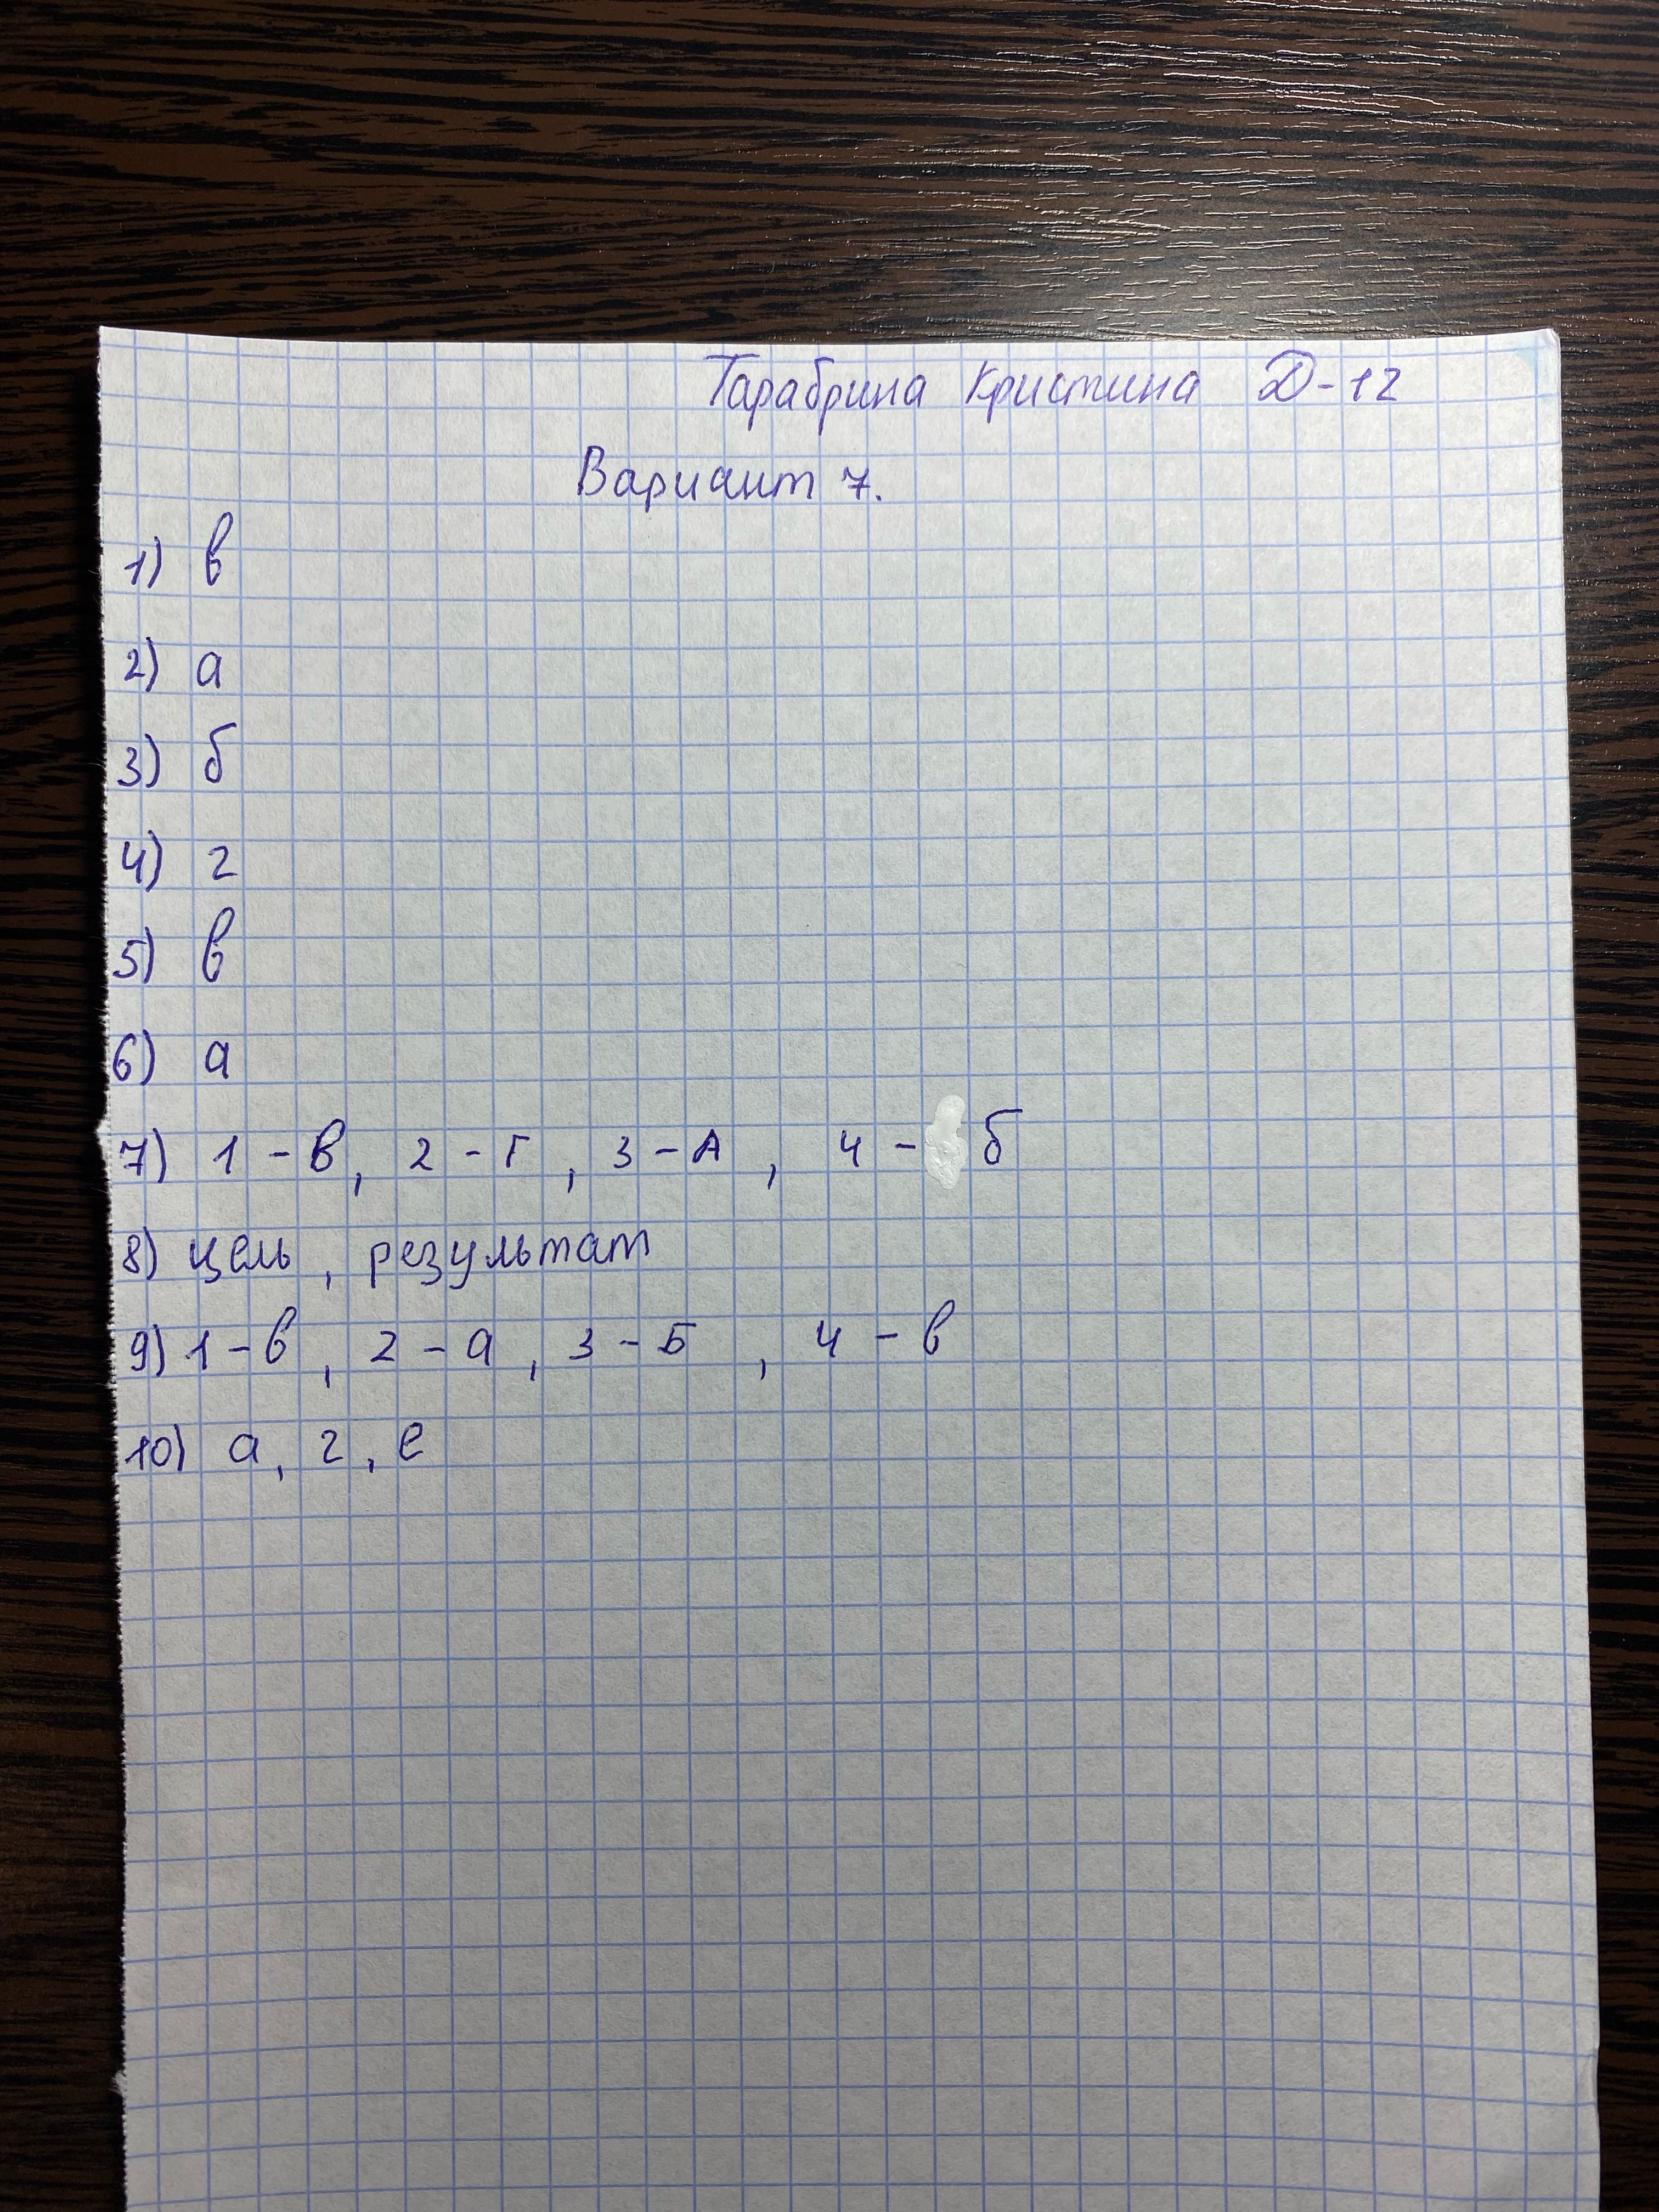 Тарабрина Кристина Д-12
Вариант 7.
1) в
2) а
3) б
4) г
5) в
6) а
7) 1-в, 2-Г, 3-А, 4-б
8) цель, результат
9) 1-в, 2-а, 3-Б, 4-в
10) а, г, е